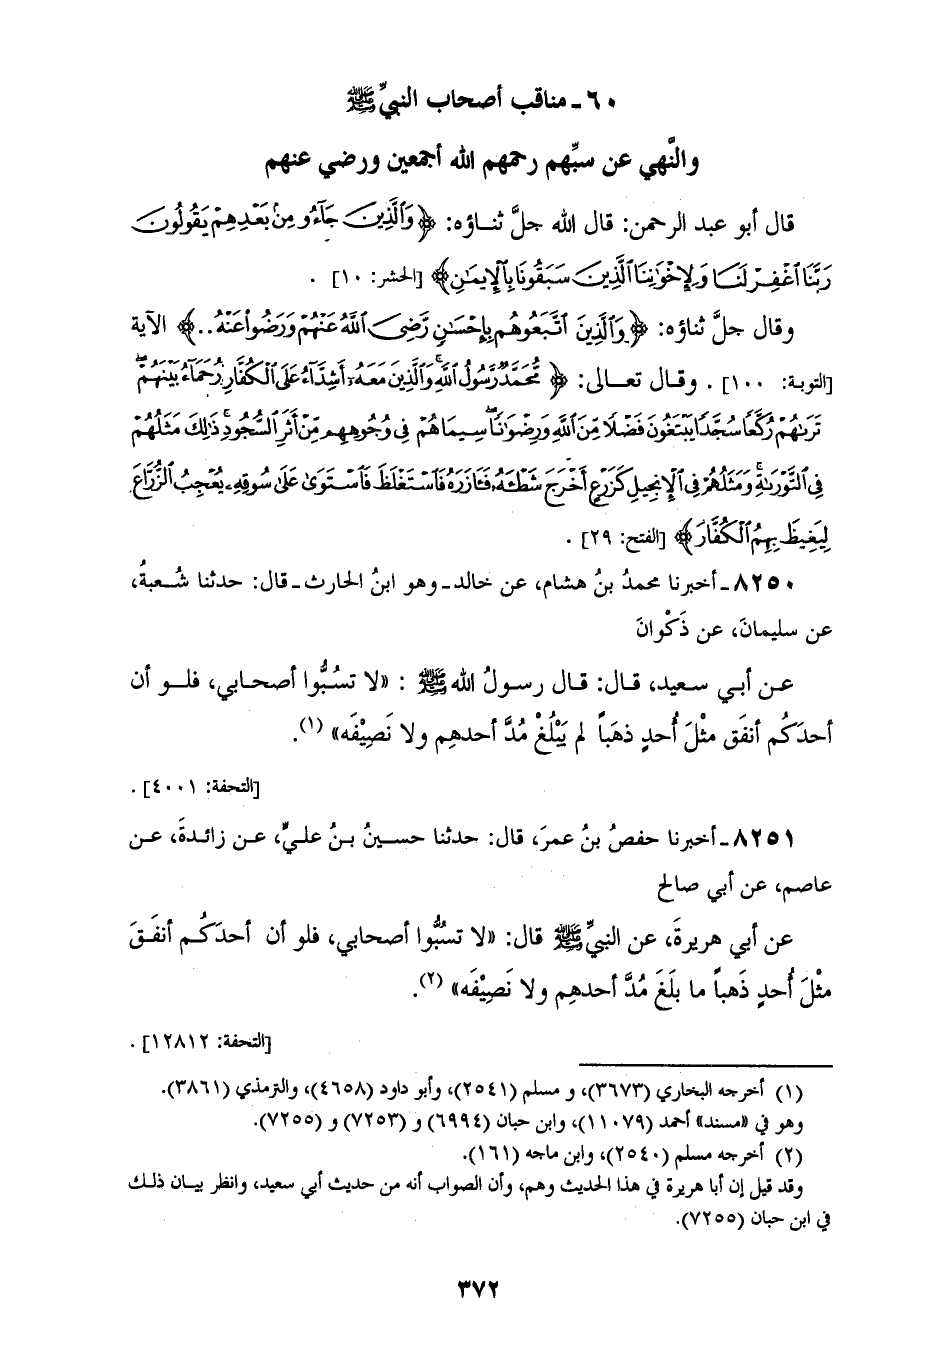 ٦٠ـ مناقب أصحاب النبيِّ ﷺ
والنَّهي عن سبِّهم رحمهم الله أجمعين ورضي عنهم
قال أبو عبد الرحمن: قال الله جلَّ ثناؤه: ﴿وَٱلَّذِينَ جَآءُو مِنۢ بَعْدِهِمْ يَقُولُونَ
رَبَّنَا ٱغْفِرْ لَنَا وَلِإِخْوَٰنِنَا ٱلَّذِينَ سَبَقُونَا بِٱلْإِيمَٰنِ﴾ [الحشر: ١٠] .
وقال جلَّ ثناؤه: ﴿وَٱلَّذِينَ ٱتَّبَعُوهُم بِإِحْسَٰنٍ رَّضِىَ ٱللَّهُ عَنْهُمْ وَرَضُوا۟ عَنْهُ..﴾ الآية
[التوبة: ١٠٠] . وقال تعالى: ﴿مُّحَمَّدٌ رَّسُولُ ٱللَّهِ ۚ وَٱلَّذِينَ مَعَهُۥٓ أَشِدَّآءُ عَلَى ٱلْكُفَّارِ رُحَمَآءُ بَيْنَهُمْ ۖ
تَرَىٰهُمْ رُكَّعًا سُجَّدًا يَبْتَغُونَ فَضْلًا مِّنَ ٱللَّهِ وَرِضْوَٰنًا ۖ سِيمَاهُمْ فِى وُجُوهِهِم مِّنْ أَثَرِ ٱلسُّجُودِ ۚ ذَٰلِكَ مَثَلُهُمْ
فِى ٱلتَّوْرَىٰةِ ۚ وَمَثَلُهُمْ فِى ٱلْإِنجِيلِ كَزَرْعٍ أَخْرَجَ شَطْـَٔهُۥ فَـَٔازَرَهُۥ فَٱسْتَغْلَظَ فَٱسْتَوَىٰ عَلَىٰ سُوقِهِۦ يُعْجِبُ ٱلزُّرَّاعَ
لِيَغِيظَ بِهِمُ ٱلْكُفَّارَ﴾ [الفتح: ٢٩] .
٨٢٥٠ـ أخبرنا محمدُ بنُ هشام، عن خالد ـ وهو ابنُ الحارث ـ قال: حدثنا شُعبةُ،
عن سليمانَ، عن ذَكْوانَ
عن أبي سعيد، قال: قال رسولُ الله ﷺ : «لا تسُبُّوا أصحابي، فلو أن
أحدَكُم أنفَق مثْلَ أُحدٍ ذهَباً لم يَبْلُغْ مُدَّ أحدهِم ولا نَصِيْفَه» (١).
[التحفة: ٤٠٠١] .
٨٢٥١ـ أخبرنا حفصُ بنُ عمرَ، قال: حدثنا حسينُ بنُ عليٍّ، عن زائدةَ، عن
عاصم، عن أبي صالح
عن أبي هريرةَ، عن النبيِّ ﷺ قال: «لا تسُبُّوا أصحابي، فلو أن أحدَكُم أنفَقَ
مثْلَ أُحدٍ ذَهباً ما بلَغَ مُدَّ أحدهِم ولا نَصِيْفَه» (٢).
[التحفة: ١٢٨١٢] .
(١) أخرجه البخاري (٣٦٧٣)، و مسلم (٢٥٤١)، وأبو داود (٤٦٥٨)، والترمذي (٣٨٦١).
وهو في «مسند» أحمد (١١٠٧٩)، وابن حبان (٦٩٩٤) و (٧٢٥٣) و (٧٢٥٥).
(٢) أخرجه مسلم (٢٥٤٠)، وابن ماجه (١٦١).
وقد قيل إن أبا هريرة في هذا الحديث وهم، وأن الصواب أنه من حديث أبي سعيد، وانظر بيان ذلك
في ابن حبان (٧٢٥٥).
٣٧٢